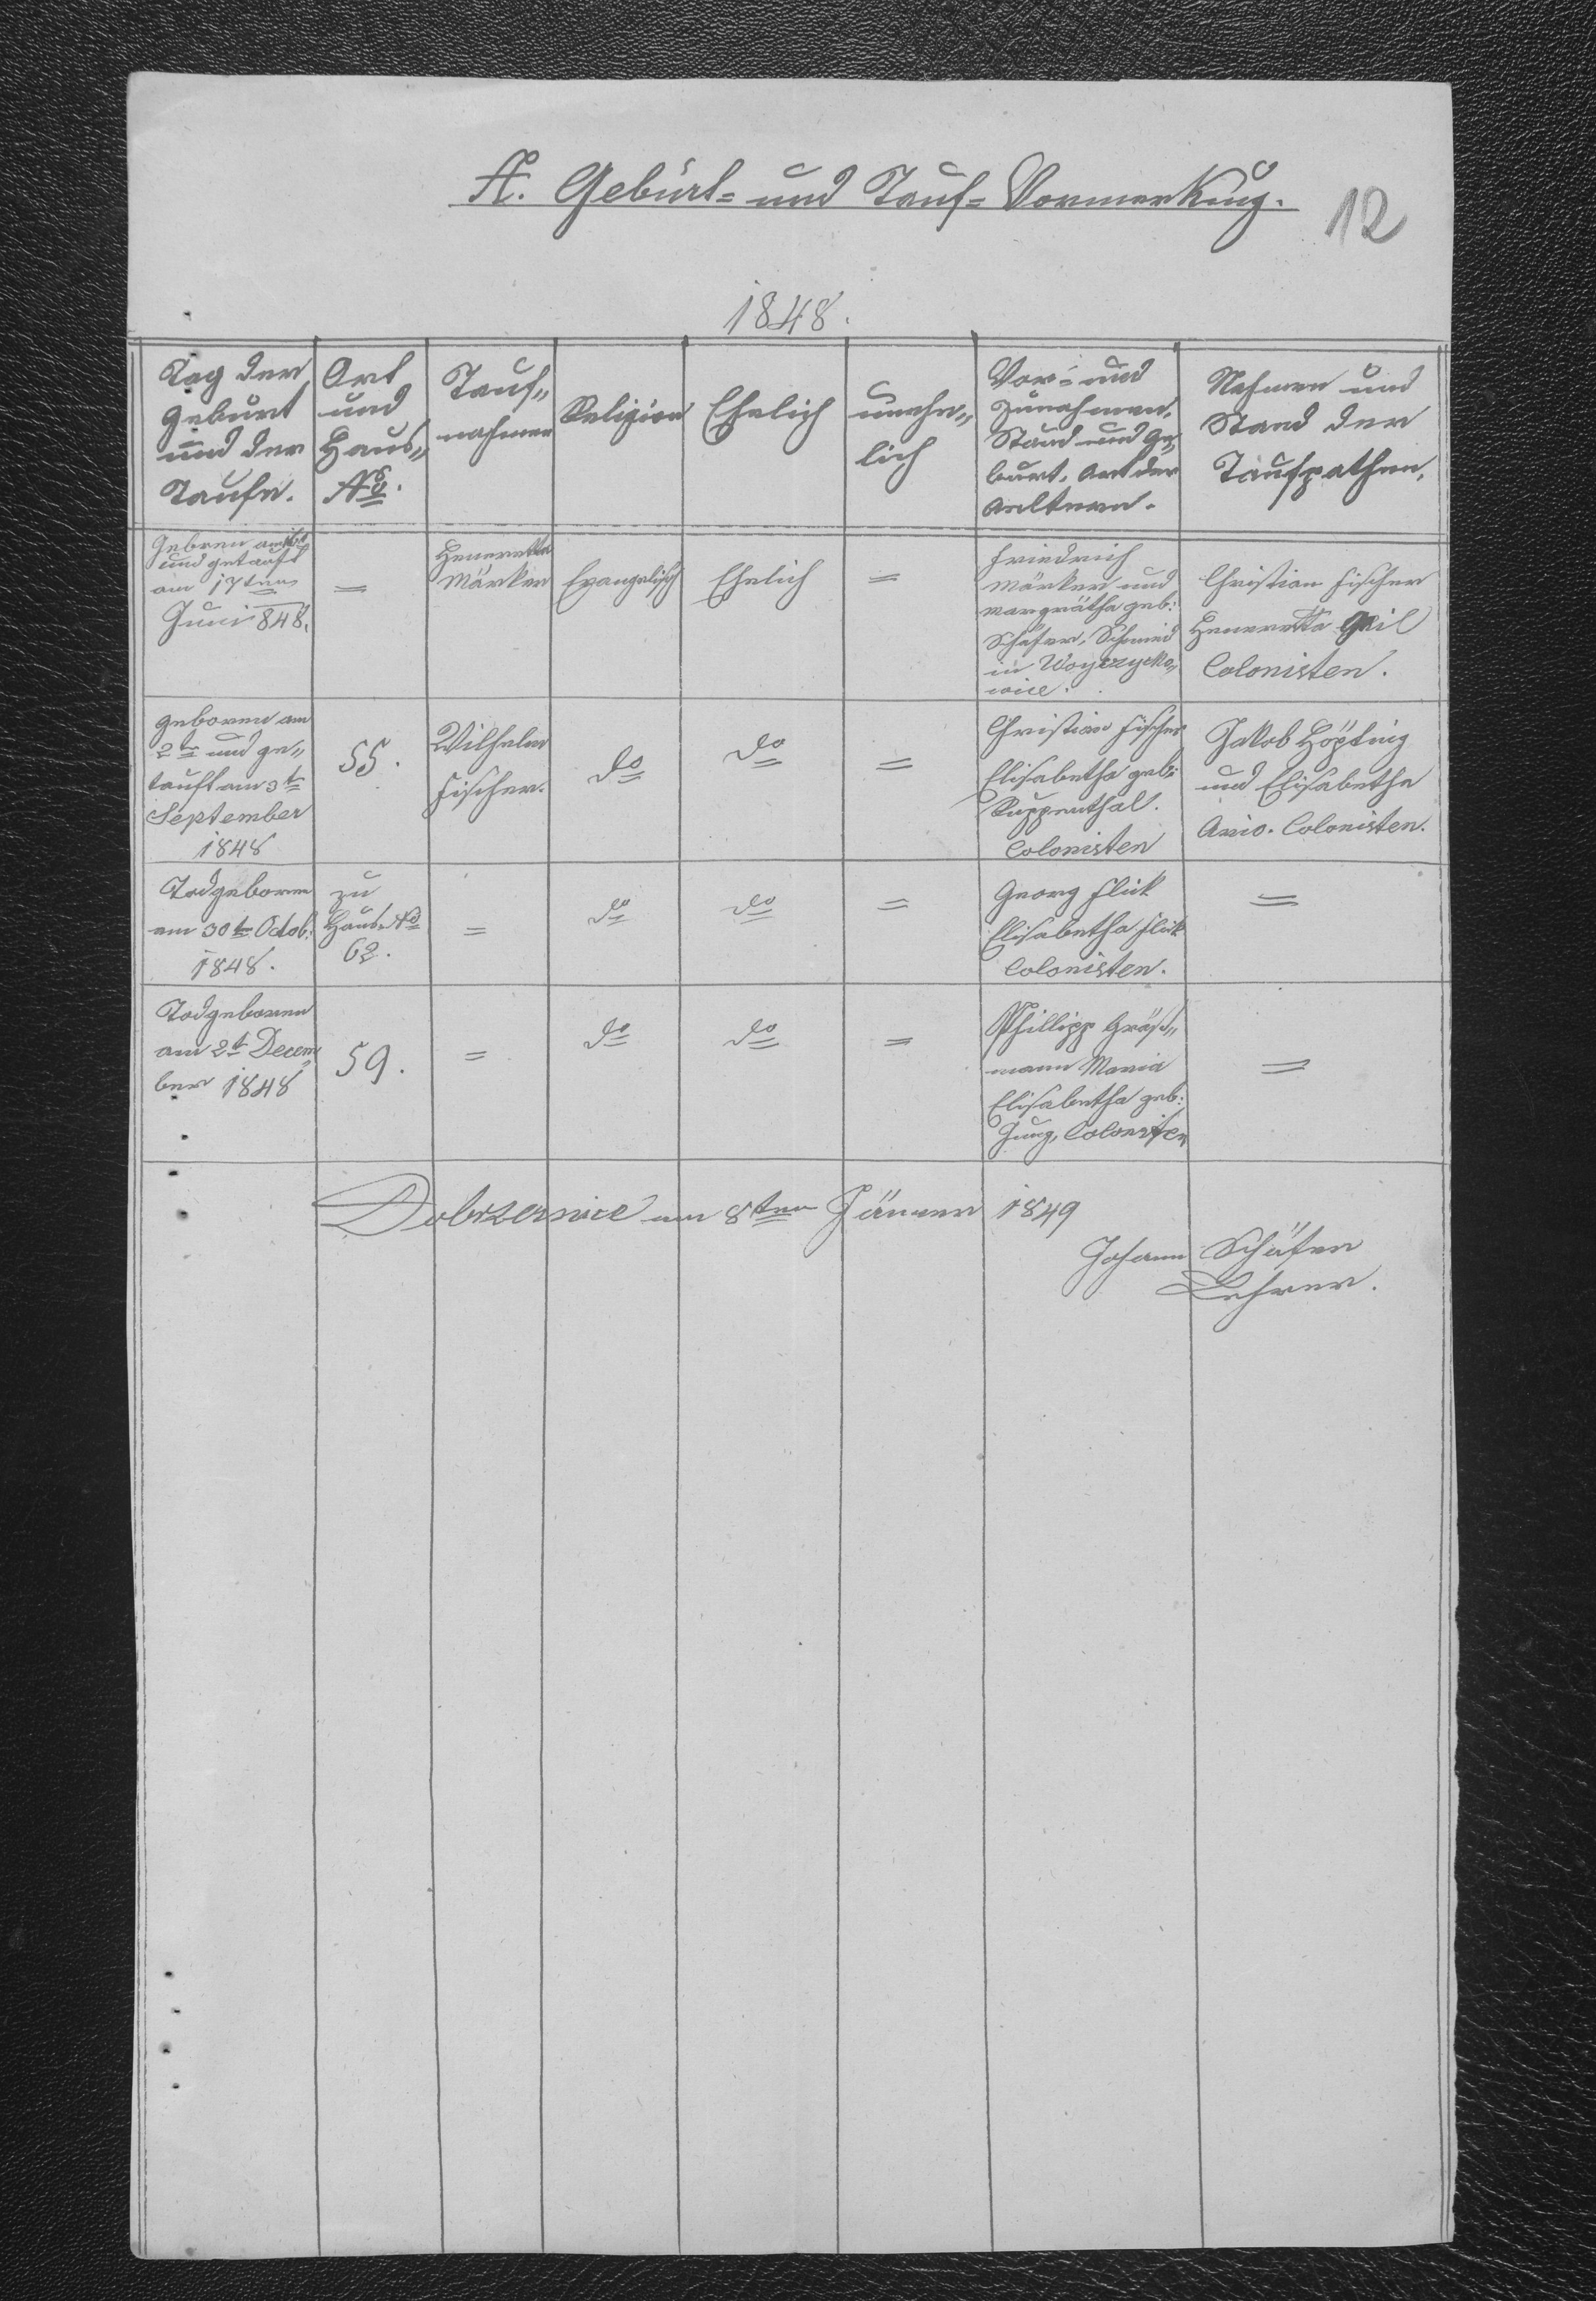 A. Geburt- und Tauf-Vormerkung.
12
1848.
Tag der
Geburt
und der
Taufe.
Ort
und
Haus-
No.
Tauf-
nahmen
Religion
Ehelich
unehe-
lich
Vor- und
Zunahmen,
Stand und Ge-
burt, Ort der
Aeltern.
Nahmen und
Stand der
Taufpathen.
und getauft
am 17ten
Juni 848.
=
Heneretta
Märker
Evangelisch
Ehelich
=
Friedrich
Märker und
Margrätha geb:
Schäfer, Schmied
in
Christian Fischer
Heneretta
Colonisten.
geboren am
2ten und ge-
tauft am 3t
September
1848
55.
Wilhelm
Fischer.
do
do
=
Christian Fischer
Elisabetha geb:
Ruppenthal.
Colonisten
Jakob Höpting
und Elisabetha
Colonisten.
Todgeboren
am 30ten Octob:
1848.
zu
Haus No
62.
=
do
do
=
Georg Flick
Elisabetha Flick
Colonisten.
=
Todgeboren
am 2t Decem-
ber 1848
59.
=
do
do
=
Phillipp Gräß-
mann Maria
Elisabetha geb:
Jung, Colonisten
=
am 8ten Jänner 1849
Johann Schäfer
Lehrer.